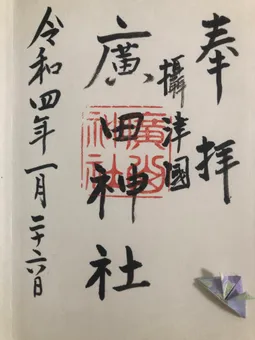 奉拝
攝津國
廣田神社
令和四年一月二十六日
廣田神社